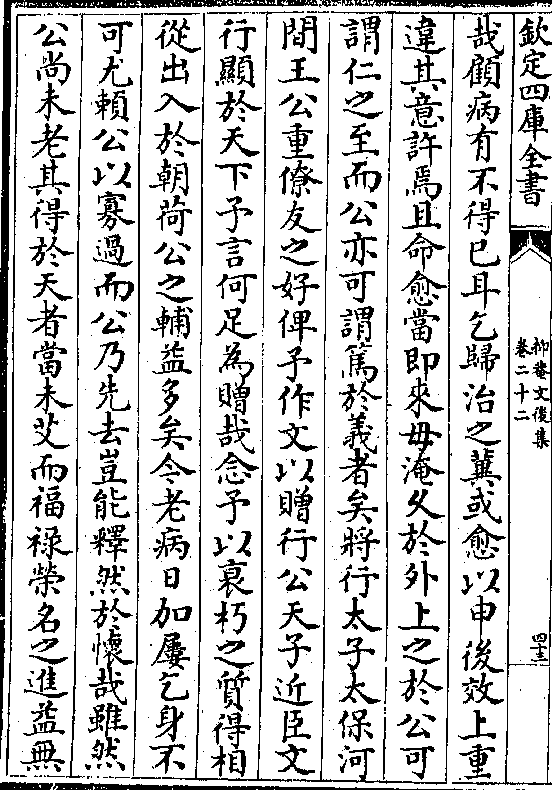 欽定四庫全書
抑菴文後集
卷二十二
四十三
哉顧病有不得已耳乞歸治之冀或愈以申後效上重
違其意許焉且命愈當即來毋淹久於外上之於公可
謂仁之至而公亦可謂篤於義者矣將行太子太保河
間王公重僚友之好俾予作文以贈行公天子近臣文
行顯於天下予言何足為贈哉念予以衰朽之質得相
從出入於朝荷公之輔益多矣今老病日加屢乞身不
可尤賴公以寡過而公乃先去豈能釋然於懷哉雖然
公尚未老其得於天者當未艾而福祿榮名之進益無